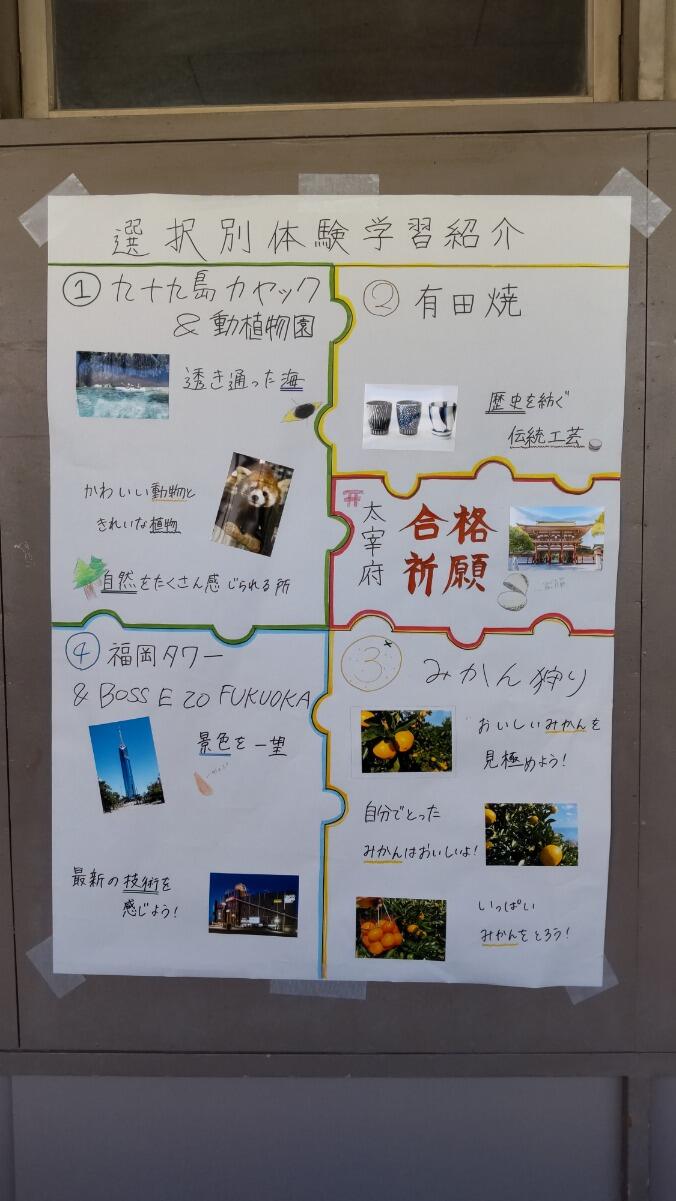 選択別体験学習紹介
① 九十九島カヤック
& 動植物園
透き通った海
かわいい動物と
きれいな植物
自然をたくさん感じられる所
② 有田焼
歴史を紡ぐ
伝統工芸
太宰府
合格
祈願
④ 福岡タワー
& BOSS E ZO FUKUOKA
景色を一望
最新の技術を
感じよう!
③ みかん狩り
おいしいみかんを
見極めよう!
自分でとった
みかんはおいしいよ!
いっぱい
みかんをとろう!